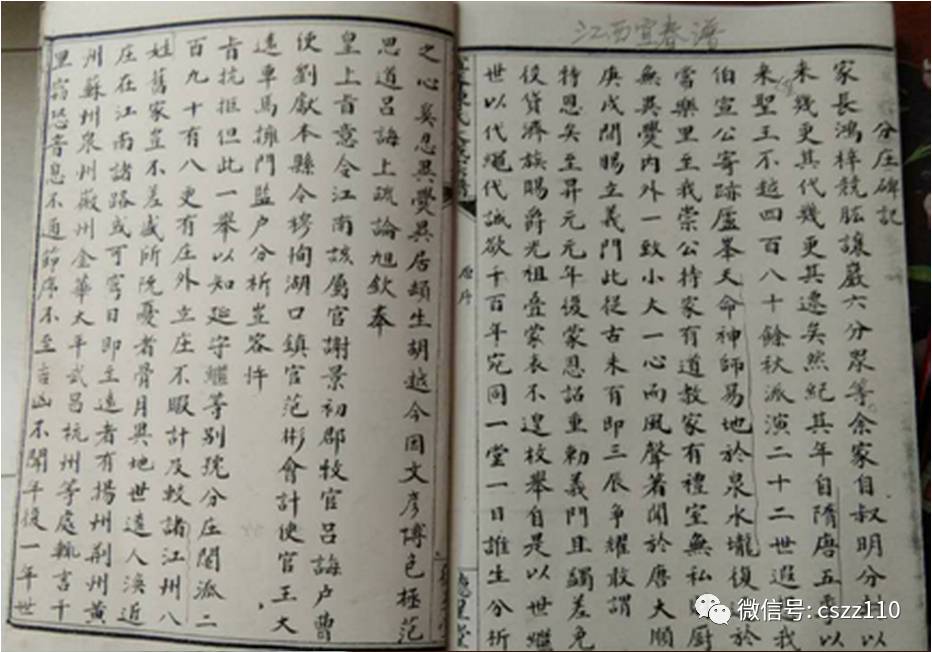 江西宜春谱
分庄碑記
家長鴻梓競肱讓嚴六分眾等余家自叔明分封以
来幾更其代幾更其遷矣然紀其年自隋唐五季以
来聖王不越四百八十餘秋派演二十二世遐我
伯宣公寄跡廬峯天命神師易地於泉水壠復於
嘗樂里至我崇公持家有道教家有禮室無私厨
無異爨內外一致小大一心而風聲著聞於唐大順
庚戌間賜立義門此從古未有即三辰争耀敢謂
特恩矣至昇元元年後蒙恩詔重勅義門且蠲差免
役貸濟族賜爵光祖叠蒙表不遑枚舉自是以世繼
世以代繩代誠欲千百年宛同一堂一日誰生分析
原序
德星堂
之心奚忍異爨異居頡生胡越今因文彦博包拯范
思道吕誨上疏論旭欽奉
皇上旨意令江南該屬官謝景初郡牧官吕誨户曹
使劉獻本縣令穆恂湖口鎮官范彬會計使官王大
遠車馬擁門監户分析豈容忤
旨抗拒但此一舉以知延守繼等别號分庄閣派二
百九十有八更有庄外立庄不暇計及較諸江州八
姓舊家豈不差盛所阮憂者骨月異地世遠人渙近
庄在江南諸路或可穹日即至遠者有揚州荆州黄
州蘇州泉州徽州金華太平武昌杭州等處輒言千
里窃恐音息不通節序不至吉凶不聞年後一年世
微信号: cszz110